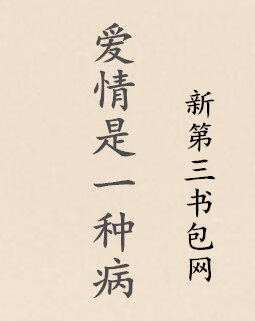 爱情是一种病
新第三书包网